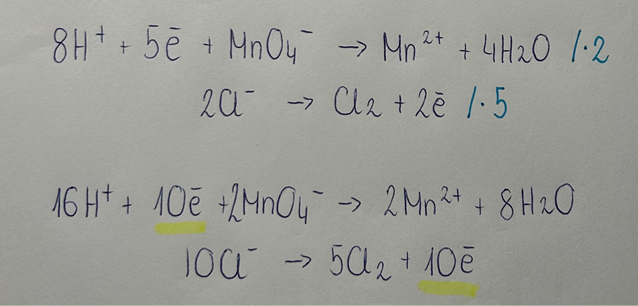 8H⁺ + 5ē + MnO₄⁻ → Mn²⁺ + 4H₂O /·2
2Cl⁻ → Cl₂ + 2ē /·5
16H⁺ + 10ē + 2MnO₄⁻ → 2Mn²⁺ + 8H₂O
10Cl⁻ → 5Cl₂ + 10ē